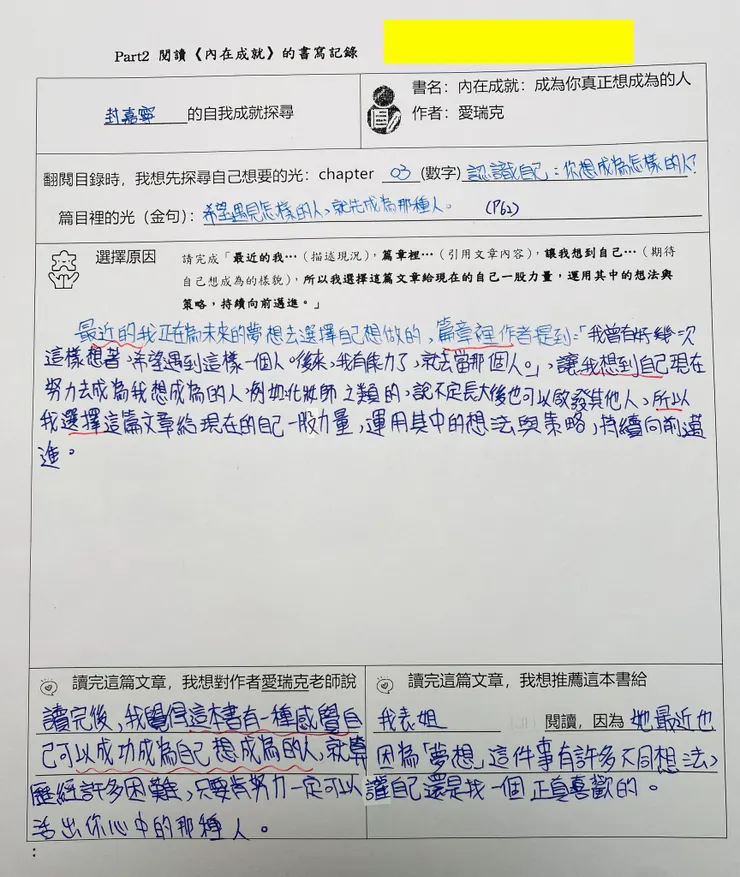 Part2 閱讀《內在成就》的書寫記錄
封嘉寧 的自我成就探尋
書名：內在成就：成為你真正想成為的人
作者：愛瑞克
翻閱目錄時，我想先探尋自己想要的光：chapter 03 (數字) 認識自己：你想成為怎樣的人?
篇目裡的光（金句）：希望遇見怎樣的人，就先成為那種人。 (P62)
選擇原因 請完成「最近的我…（描述現況），篇章裡…（引用文章內容），讓我想到自己…（期待
自己想成為的樣貌），所以我選擇這篇文章給現在的自己一股力量，運用其中的想法與
策略，持續向前邁進。」
最近的我正在為未來的夢想去選擇自己想做的，篇章裡作者提到：「我曾有好幾次
這樣想著：希望遇到這樣一個人。後來，我有能力了，就去當那個人。」，讓我想到自己現在
努力去成為我想成為的人，例如化妝師之類的，說不定長大後也可以啟發其他人，所以
我選擇這篇文章給現在的自己一股力量，運用其中的想法與策略，持續向前邁
進。
讀完這篇文章，我想對作者愛瑞克老師說
讀完後，我覺得這本書有一種感覺自
己可以成功成為自己想成為的人，就算
歷經許多困難，只要有努力一定可以
活出你心中的那種人。
讀完這篇文章，我想推薦這本書給
我表姐 閱讀，因為 她最近也
因為「夢想」這件事有許多不同想法，
讓自己還是找一個正真喜歡的。